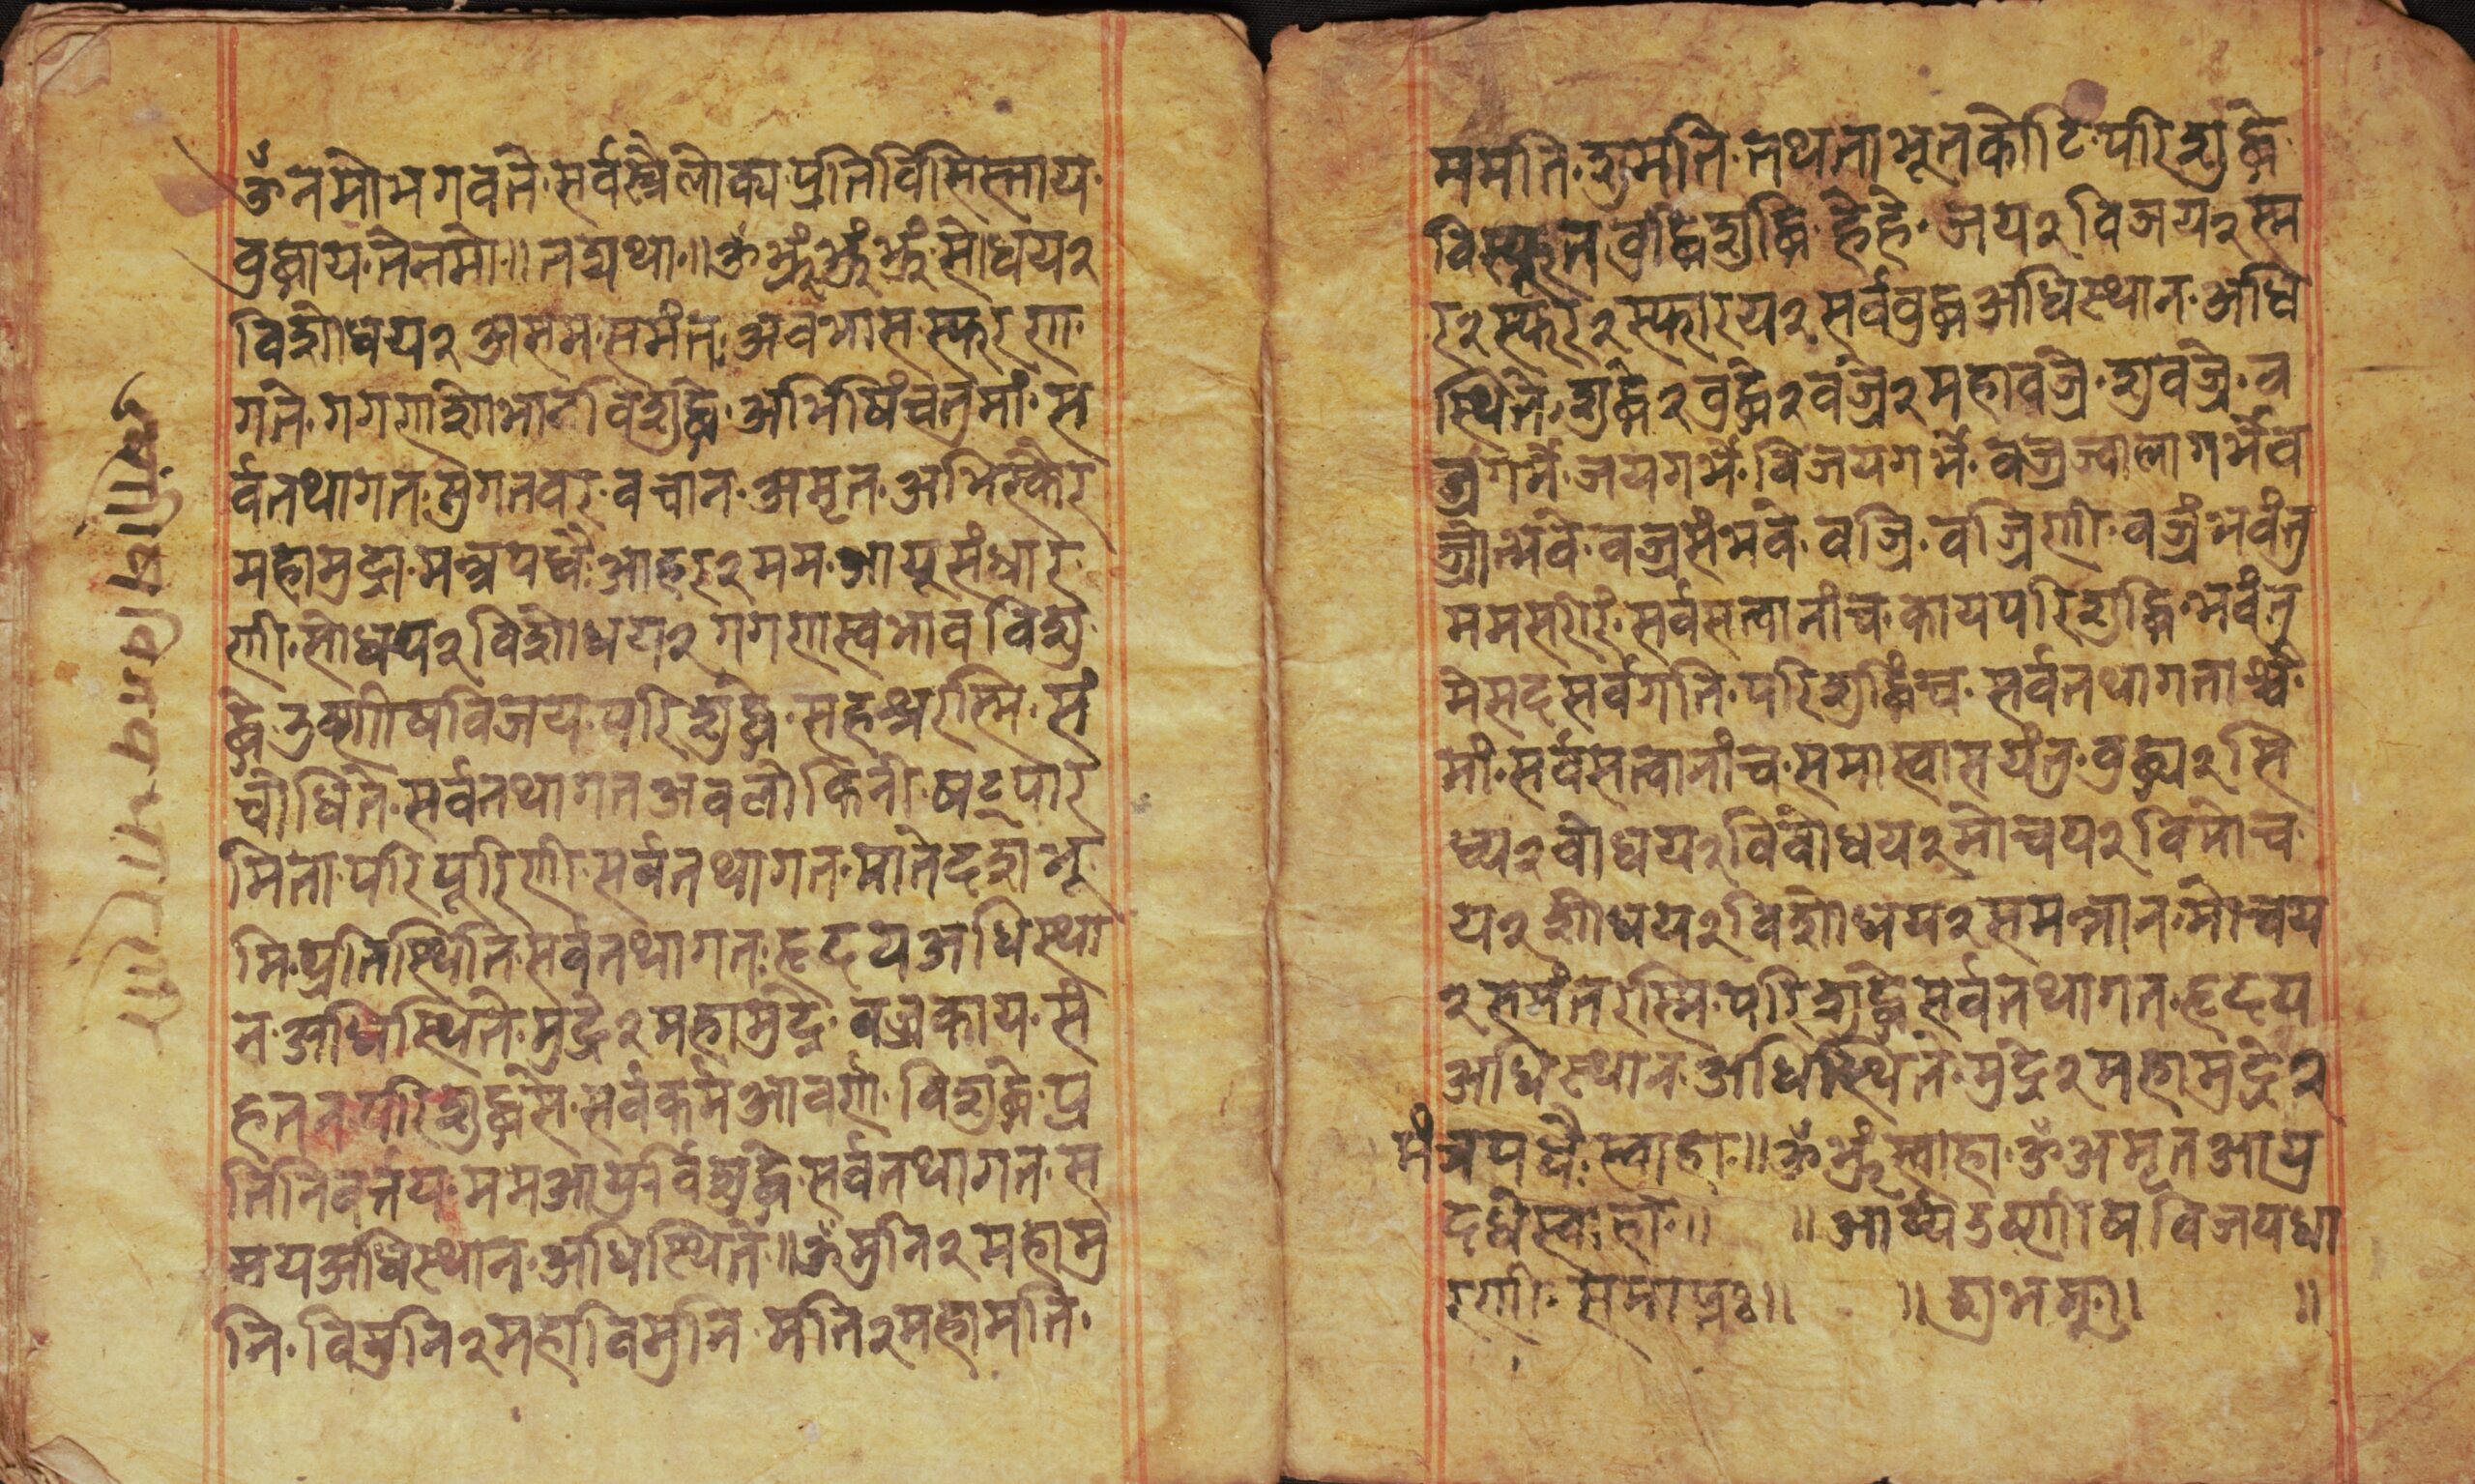 ॐ नमो भगवते· सर्वत्रैलोक्य प्रतिविसिस्ताय·
बुद्धाय·तेनमो॥ तद्यथा·॥ ॐ भ्रुं भ्रुं भ्रुं·सोधय२
विशोधय२ असम·समंत·अवभास·स्फरणा·
गते·गगणाशोभाव विशुद्धे·अभिषिंचतुमां·स
र्वतथागत·सुगतवर·वचान·अमृत·अभिस्कैर
महामुद्रा·मन्त्रपधै·आहर२ मम·आयूसंधार
णी·सोधय२ विशोधय२ गगणास्वभाव विशु
द्धे उष्णीषविजय·परिशुद्धे·सहश्ररस्मि·सं
चोधिते·सर्वतथागतअवलोकिनी·षट्पार
मिता·परिपूरिणी·सर्वतथागत·मातेदशभू
मि·प्रतिस्थिति·सर्वतथागत·हृदयअधिस्था
न·अधिस्थिते·मुद्रे२ महामुद्रे·वज्रकाय·सं
हतन·परिशुद्धसे·सर्वकर्मआवर्ण·विशुद्धे·प्र
तिनिवर्तय·ममआयुर्विशुद्धे·सर्वतथागत·स
मयअधिस्थान·अधिस्थिते·॥ॐ मुनि२ महामु
नि·विमुनि२ महाविमुनि·मति२ महामति·
ममति·सुमति·तथताभूतकोटि·परिशुद्धे·
विस्फुत बुद्धिशुद्धि·हेहे·जय२ विजय२ स्म
र२ स्फर२ स्फारय२ सर्वबुद्धअधिस्थान·अधि
स्थिते·शुद्धे२ बुद्धे२ वज्रे२ महावज्रे·सुवज्रे·व
ज्रगर्भे·जयगर्भे·विजयगर्भे·वज्रज्वालागर्भेव
ज्रोत्भवे·वज्रसंभवे·वज्रि·वज्रिणी·वज्रंभवंतु
ममसरीरं·सर्वसत्वानांच·कायपरिशुद्धि·भवंतु
मेसदसर्वगति·परिशुद्धिंच·सर्वतथागताश्चै·
मां·सर्वसत्वानांच·समास्वासयंतु·बुद्ध्य२ सि
ध्य२ बोधय२ विबोधय२ मोचय२ विमोच
य२ शोधय२ विशोधय२ समन्तान·मोचय
२ समंतरस्मि·परिशुद्धेसर्वतथागत·हृदय
अधिस्थान·अधिस्थिते·मुद्रे२ महामुद्रे२
मंत्रपधै·स्वाहा·॥ ॐ भ्रुं स्वाहा·ॐ अमृतआयु
र्दधेस्वाहा·॥ ॥ आर्य्यउष्णीषविजयधा
रणी·समाप्तः॥ ॥ शुभम्॥ ॥